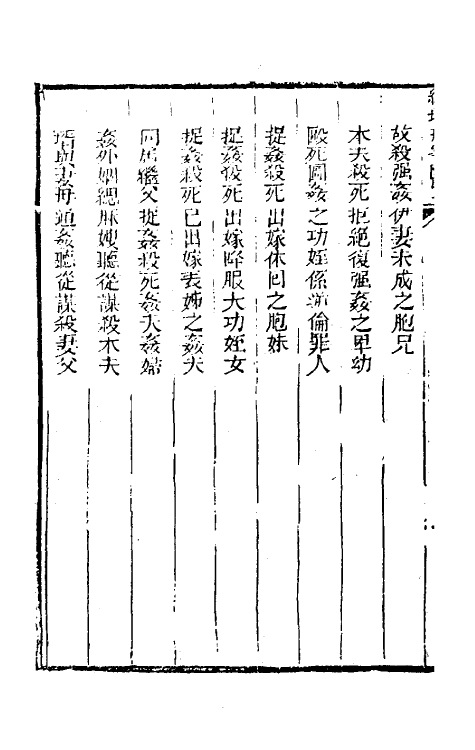 故殺强姦伊妻未成之胞兄
本夫殺死拒絶復强姦之卑幼
毆死圖姦之功姪係瀆倫罪人
捉姦殺死出嫁休回之胞妹
捉姦殺死出嫁降服大功姪女
捉姦殺死已出嫁表姊之姦夫
同居繼父捉姦殺死姦夫姦婦
姦外姻緦麻嫂聽從謀殺本夫
壻與妻母通姦聽從謀殺妻父